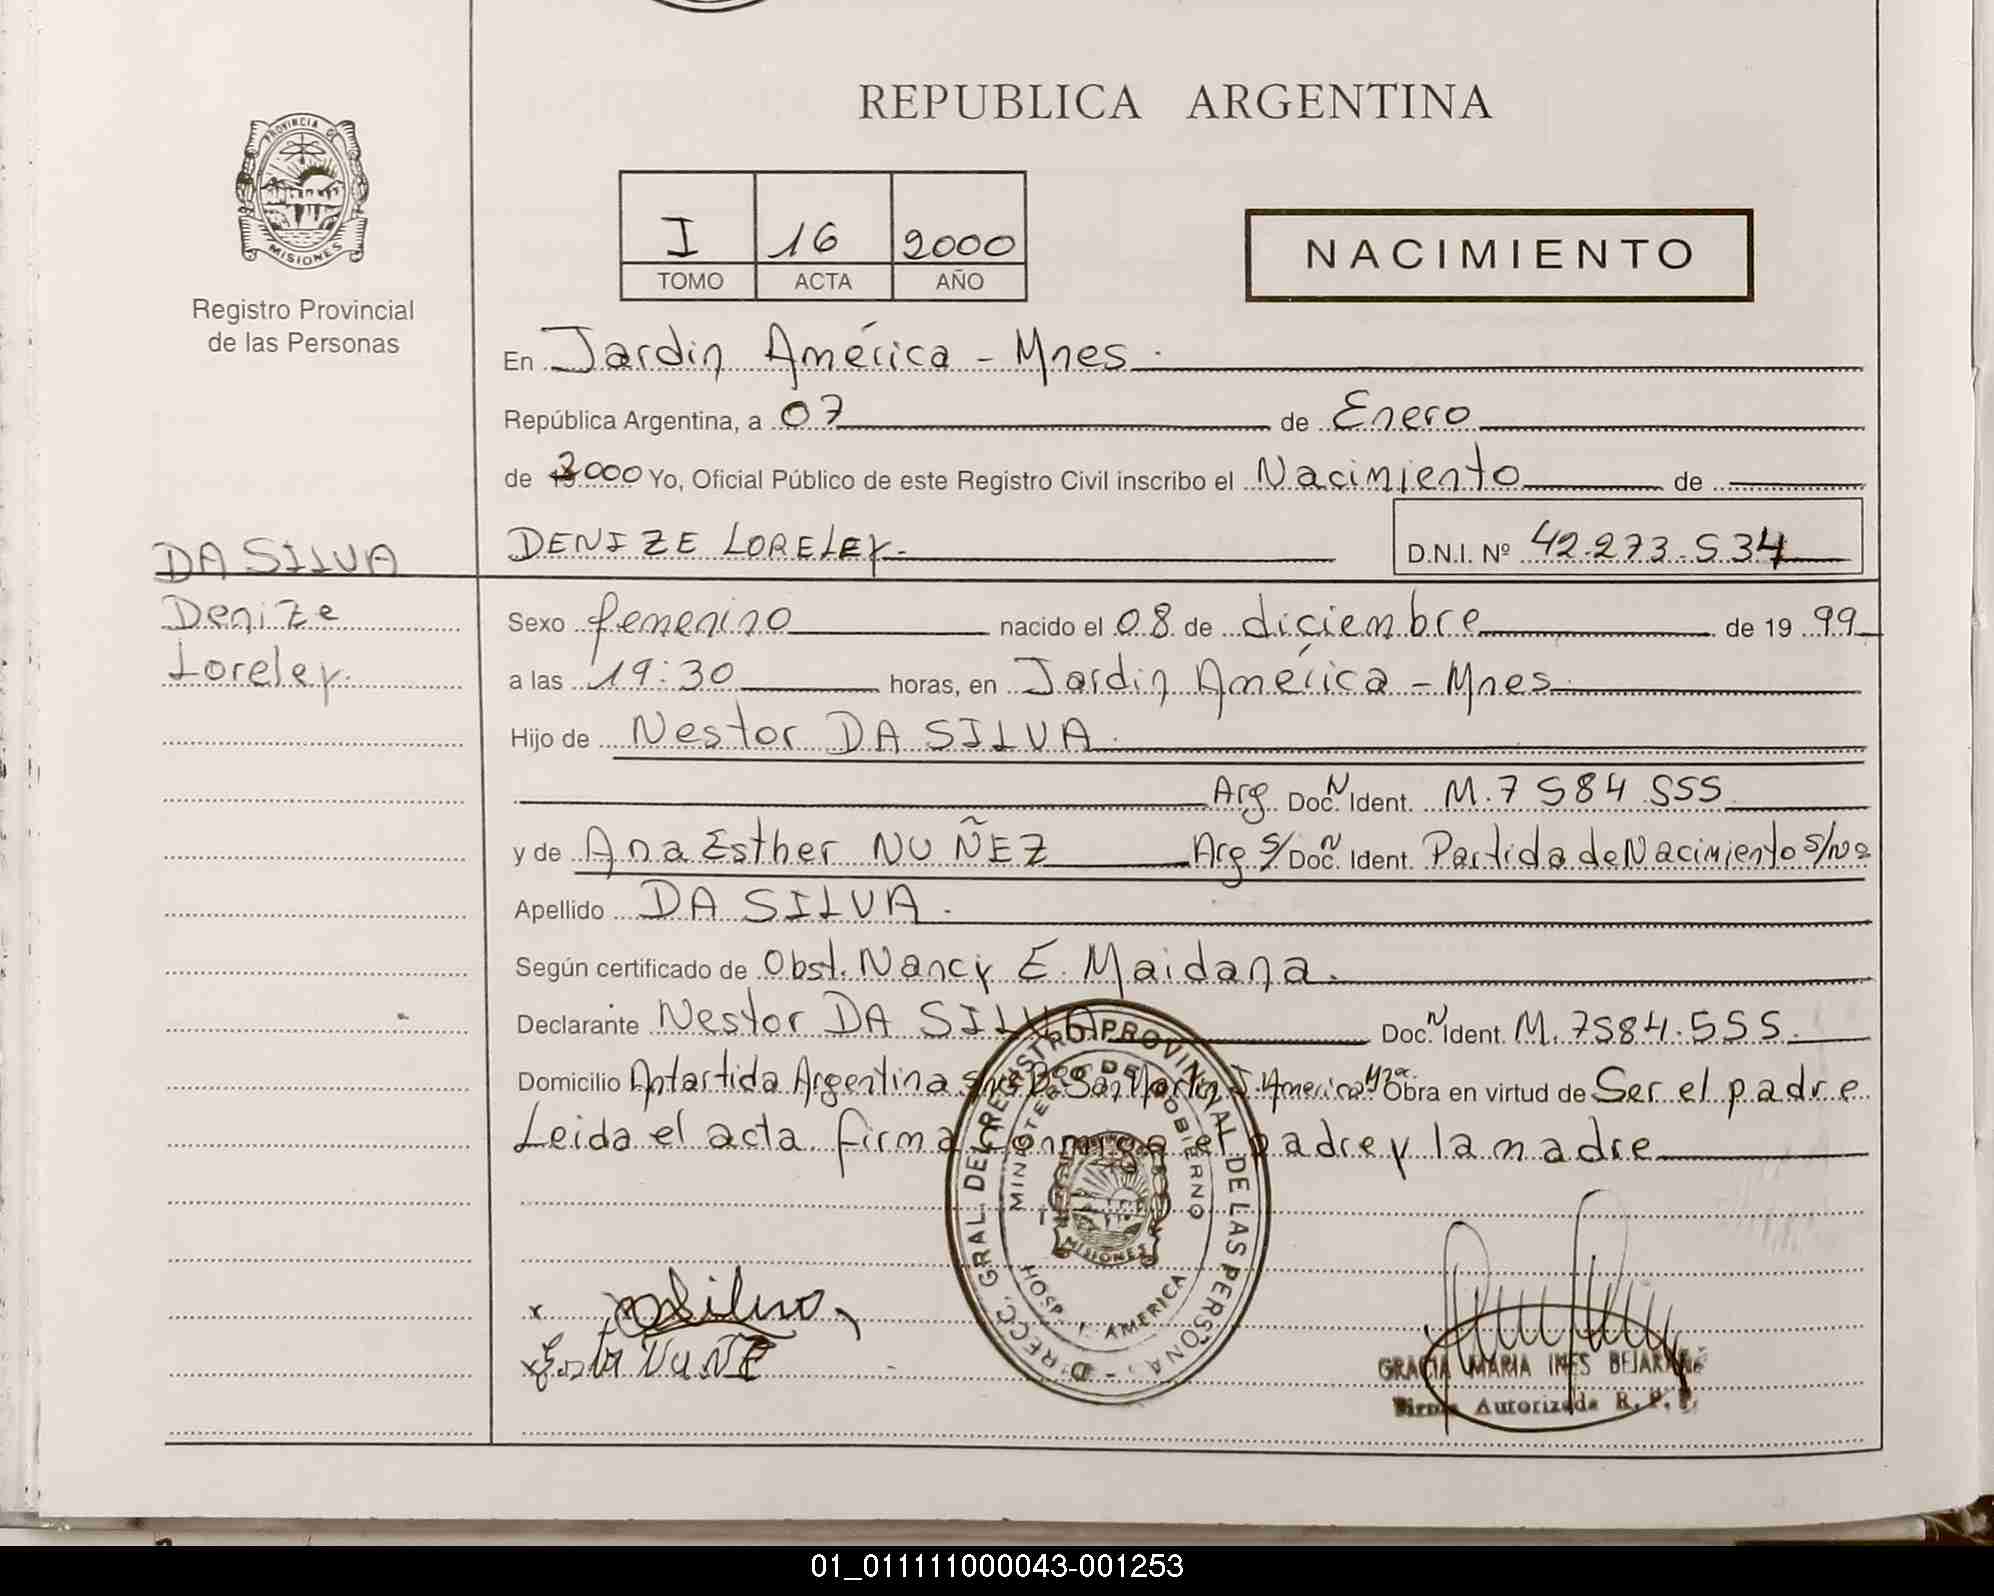 REPUBLICA ARGENTINA
PROVINCIA DE
MISIONES
Registro Provincial
de las Personas
I 16 2000
TOMO ACTA AÑO
NACIMIENTO
En Jardin América - Mnes.
República Argentina, a 07 de Enero
de 2000 Yo, Oficial Público de este Registro Civil inscribo el Nacimiento de
DENIZE LORELEY. D.N.I. Nº 42.273.534
DA SILVA
Denize
Loreley.
Sexo femenino nacido el 08 de diciembre de 19 99
a las 19:30 horas, en Jardin América - Mnes.
Hijo de Nestor DA SILVA.
Arg. Doc. N Ident. M.7584555
y de Ana Esther NUÑEZ Arg S/ Doc. N Ident. Partida de Nacimiento S/Nº
Apellido DA SILVA.
Según certificado de Obst. Nancy E. Maidana.
Declarante Nestor DA SILVA Doc. N Ident. M.7584.555.
Domicilio Antartida Argentina San Martin J. America Obra en virtud de Ser el padre
Leida el acta firma conmigo el padre y la madre
DIRECC. GRAL. DEL REGISTRO PROVINCIAL DE LAS PERSONAS
MINISTERIO DE GOBIERNO
MISIONES
HOSP. AMERICA
x
x NUÑE
GRACIA MARIA INES BEJARANO
Firma Autorizada R. P. P.
01_011111000043-001253